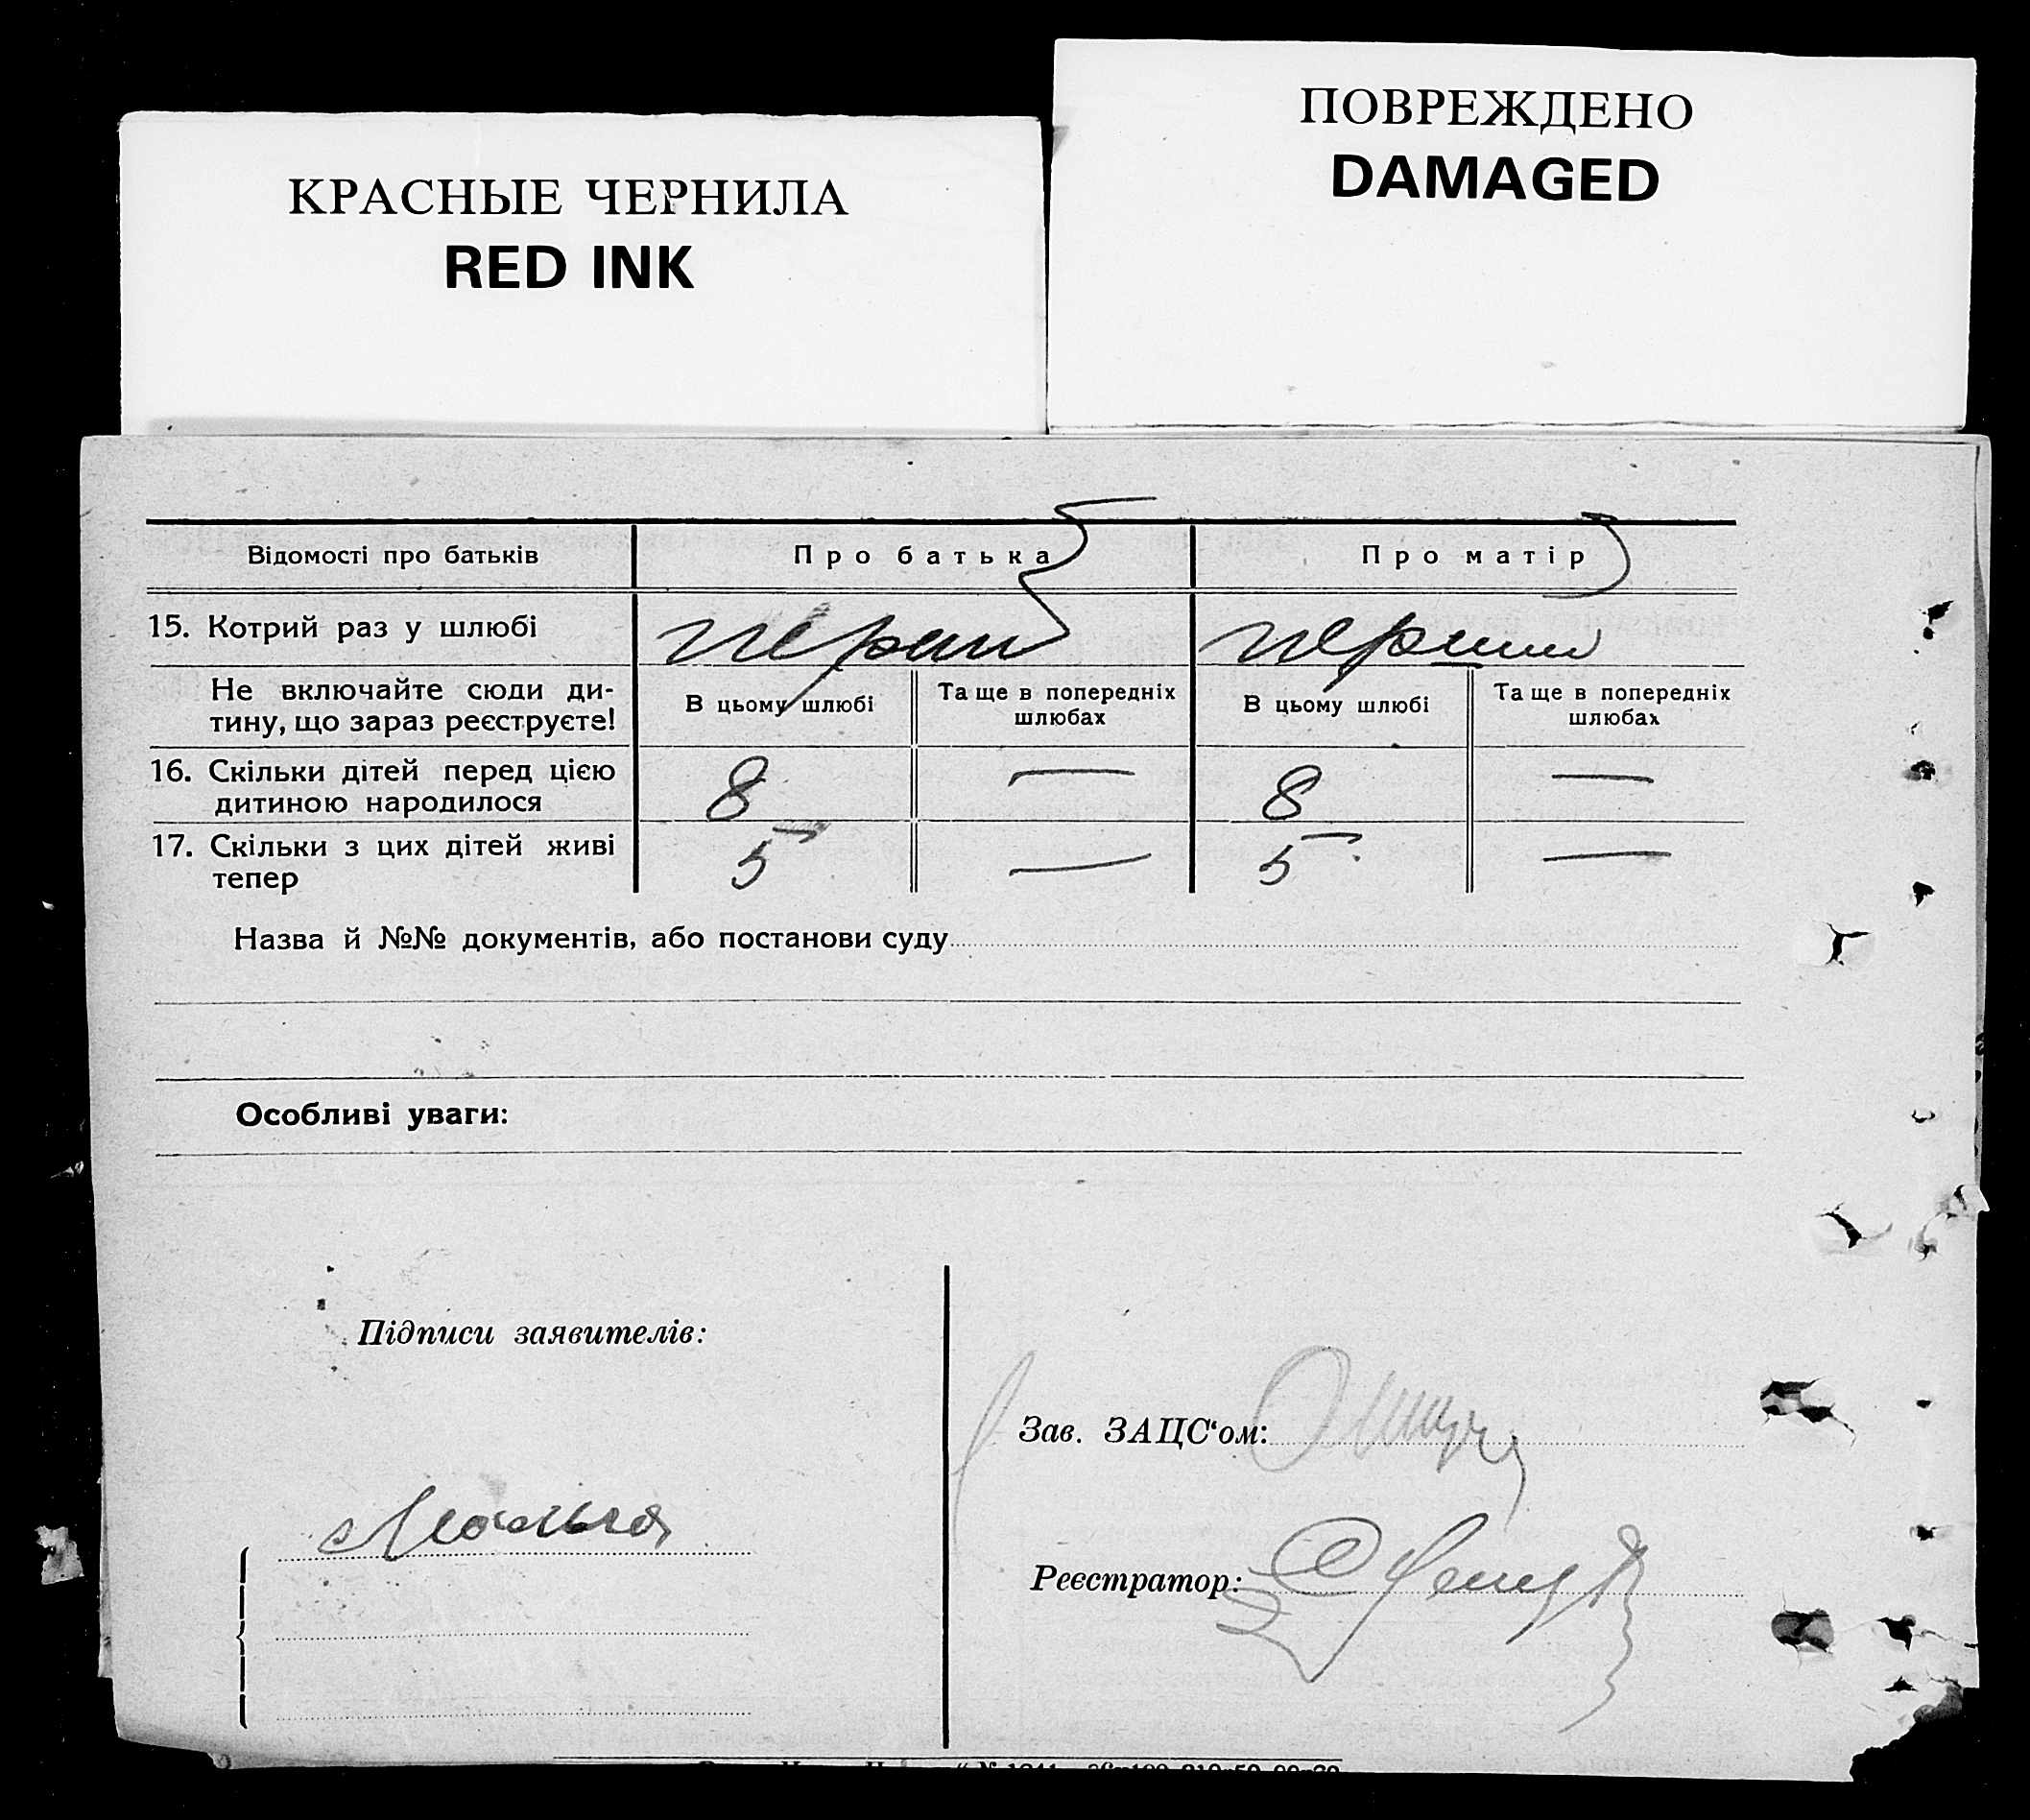 ПОВРЕЖДЕНО
DAMAGED
КРАСНЫЕ ЧЕРНИЛА
RED INK
Відомості про батьків Про батька Про матір
15. Котрий раз у шлюбі
Не включайте сюди ди-
тину, що зараз реєструєте!
В цьому шлюбі Та ще в попередніх
шлюбах
В цьому шлюбі Та ще в попередніх
шлюбах
16. Скільки дітей перед цією
дитиною народилося
8 — 8 —
17. Скільки з цих дітей живі
тепер
5 — 5 —
Назва й №№ документів, або постанови суду
Особливі уваги:
Підписи заявителів:
Зав. ЗАЦС‘ом:
Реєстратор: